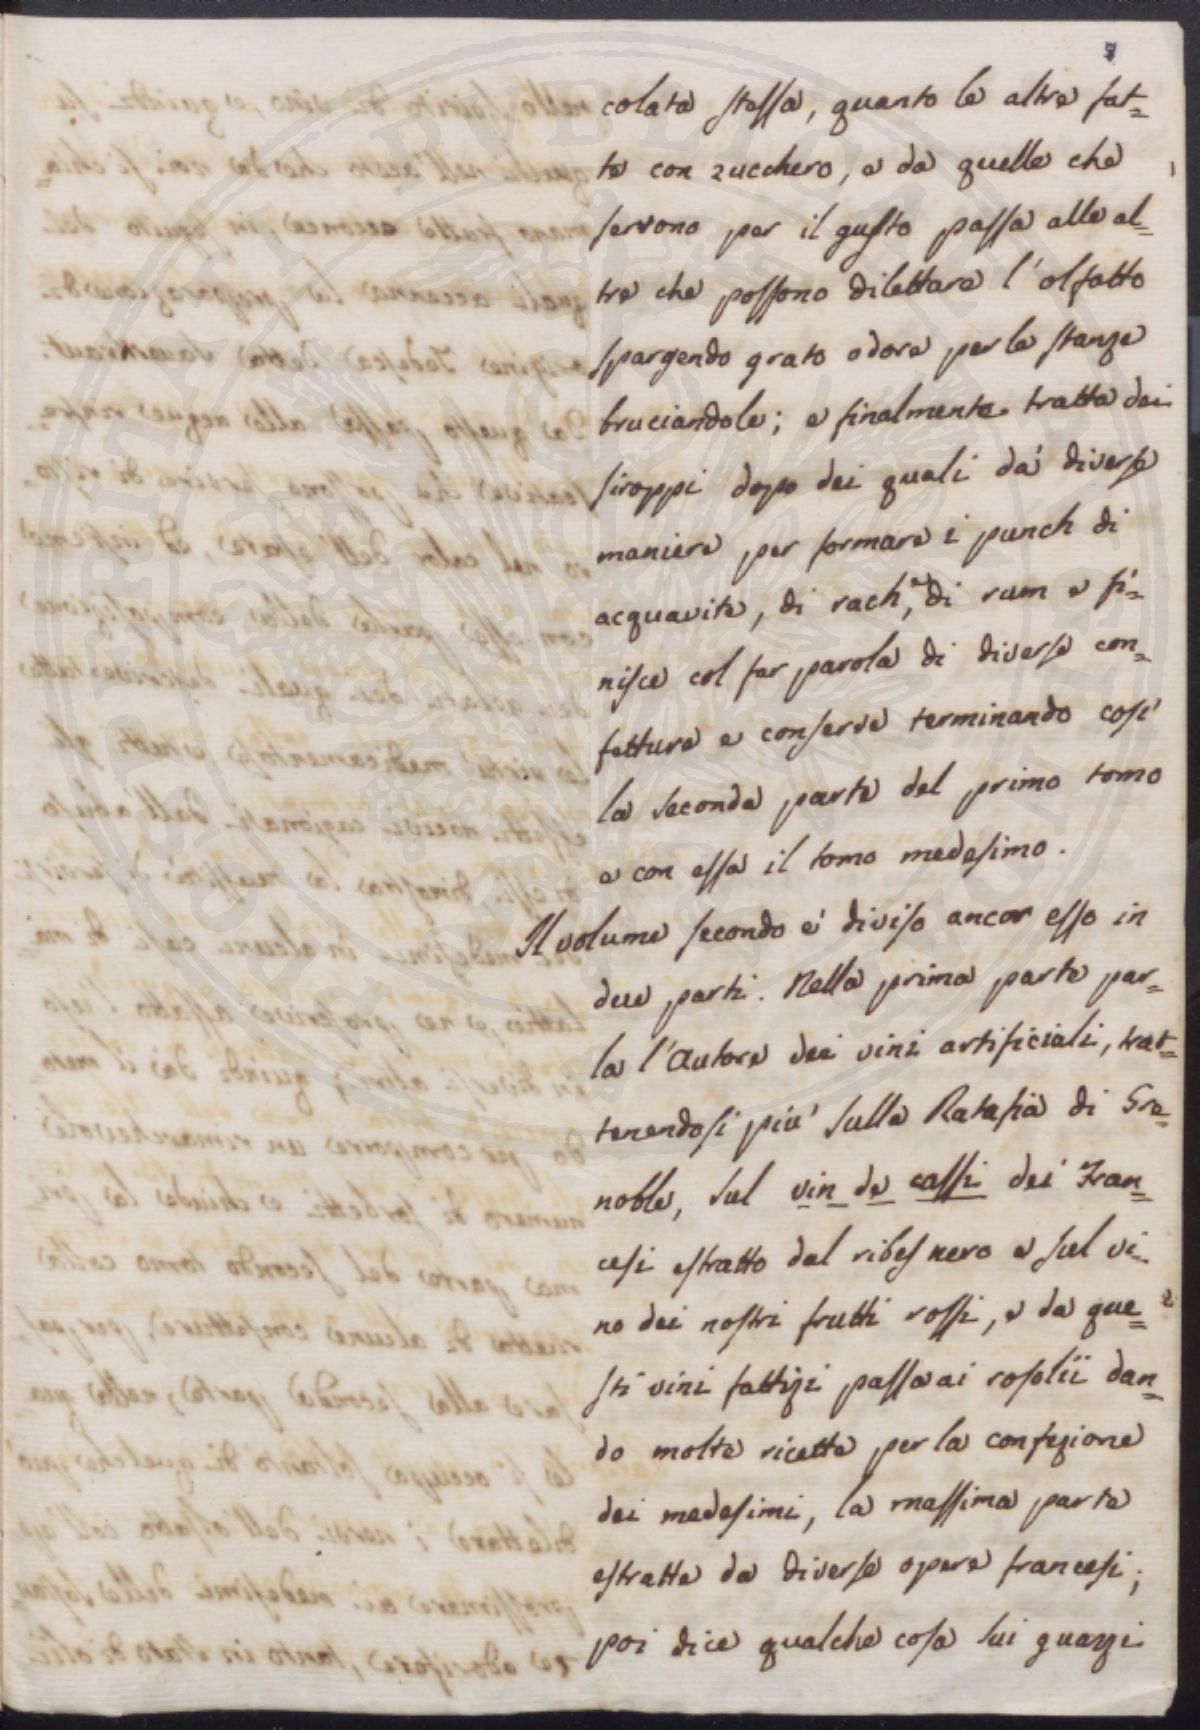 colata stessa, quanto le altre fat=
te con zucchero, e da quelle che
servono per il gusto passa alle al=
tre che possono dilettare l'olfatto
spargendo grato odore per le stanze
bruciandole; e finalmente tratta dei
siroppi dopo dei quali dà diverse
maniere per formare i punch di
acquavite, di rach, e di rum e fi=
nisce col far parola di diverse con=
fetture e conserve terminando così
la seconda parte del primo tomo
e con essa il tomo medesimo.
Il volume secondo è diviso ancor esso in
due parti. Nella prima parte par=
la l'Autore dei vini artificiali, trat=
tenendosi più sulla Ratafia di Gre=
noble, sul vin de cassi dei Fran=
cesi estratto dal ribes nero e sul vi=
no dei nostri frutti rossi, e da que=
sti vini fattizi passa ai rosolii dan=
do molte ricette per la confezione
dei medesimi, la massima parte
estratte da diverse opere francesi;
poi dice qualche cosa sui guazzi